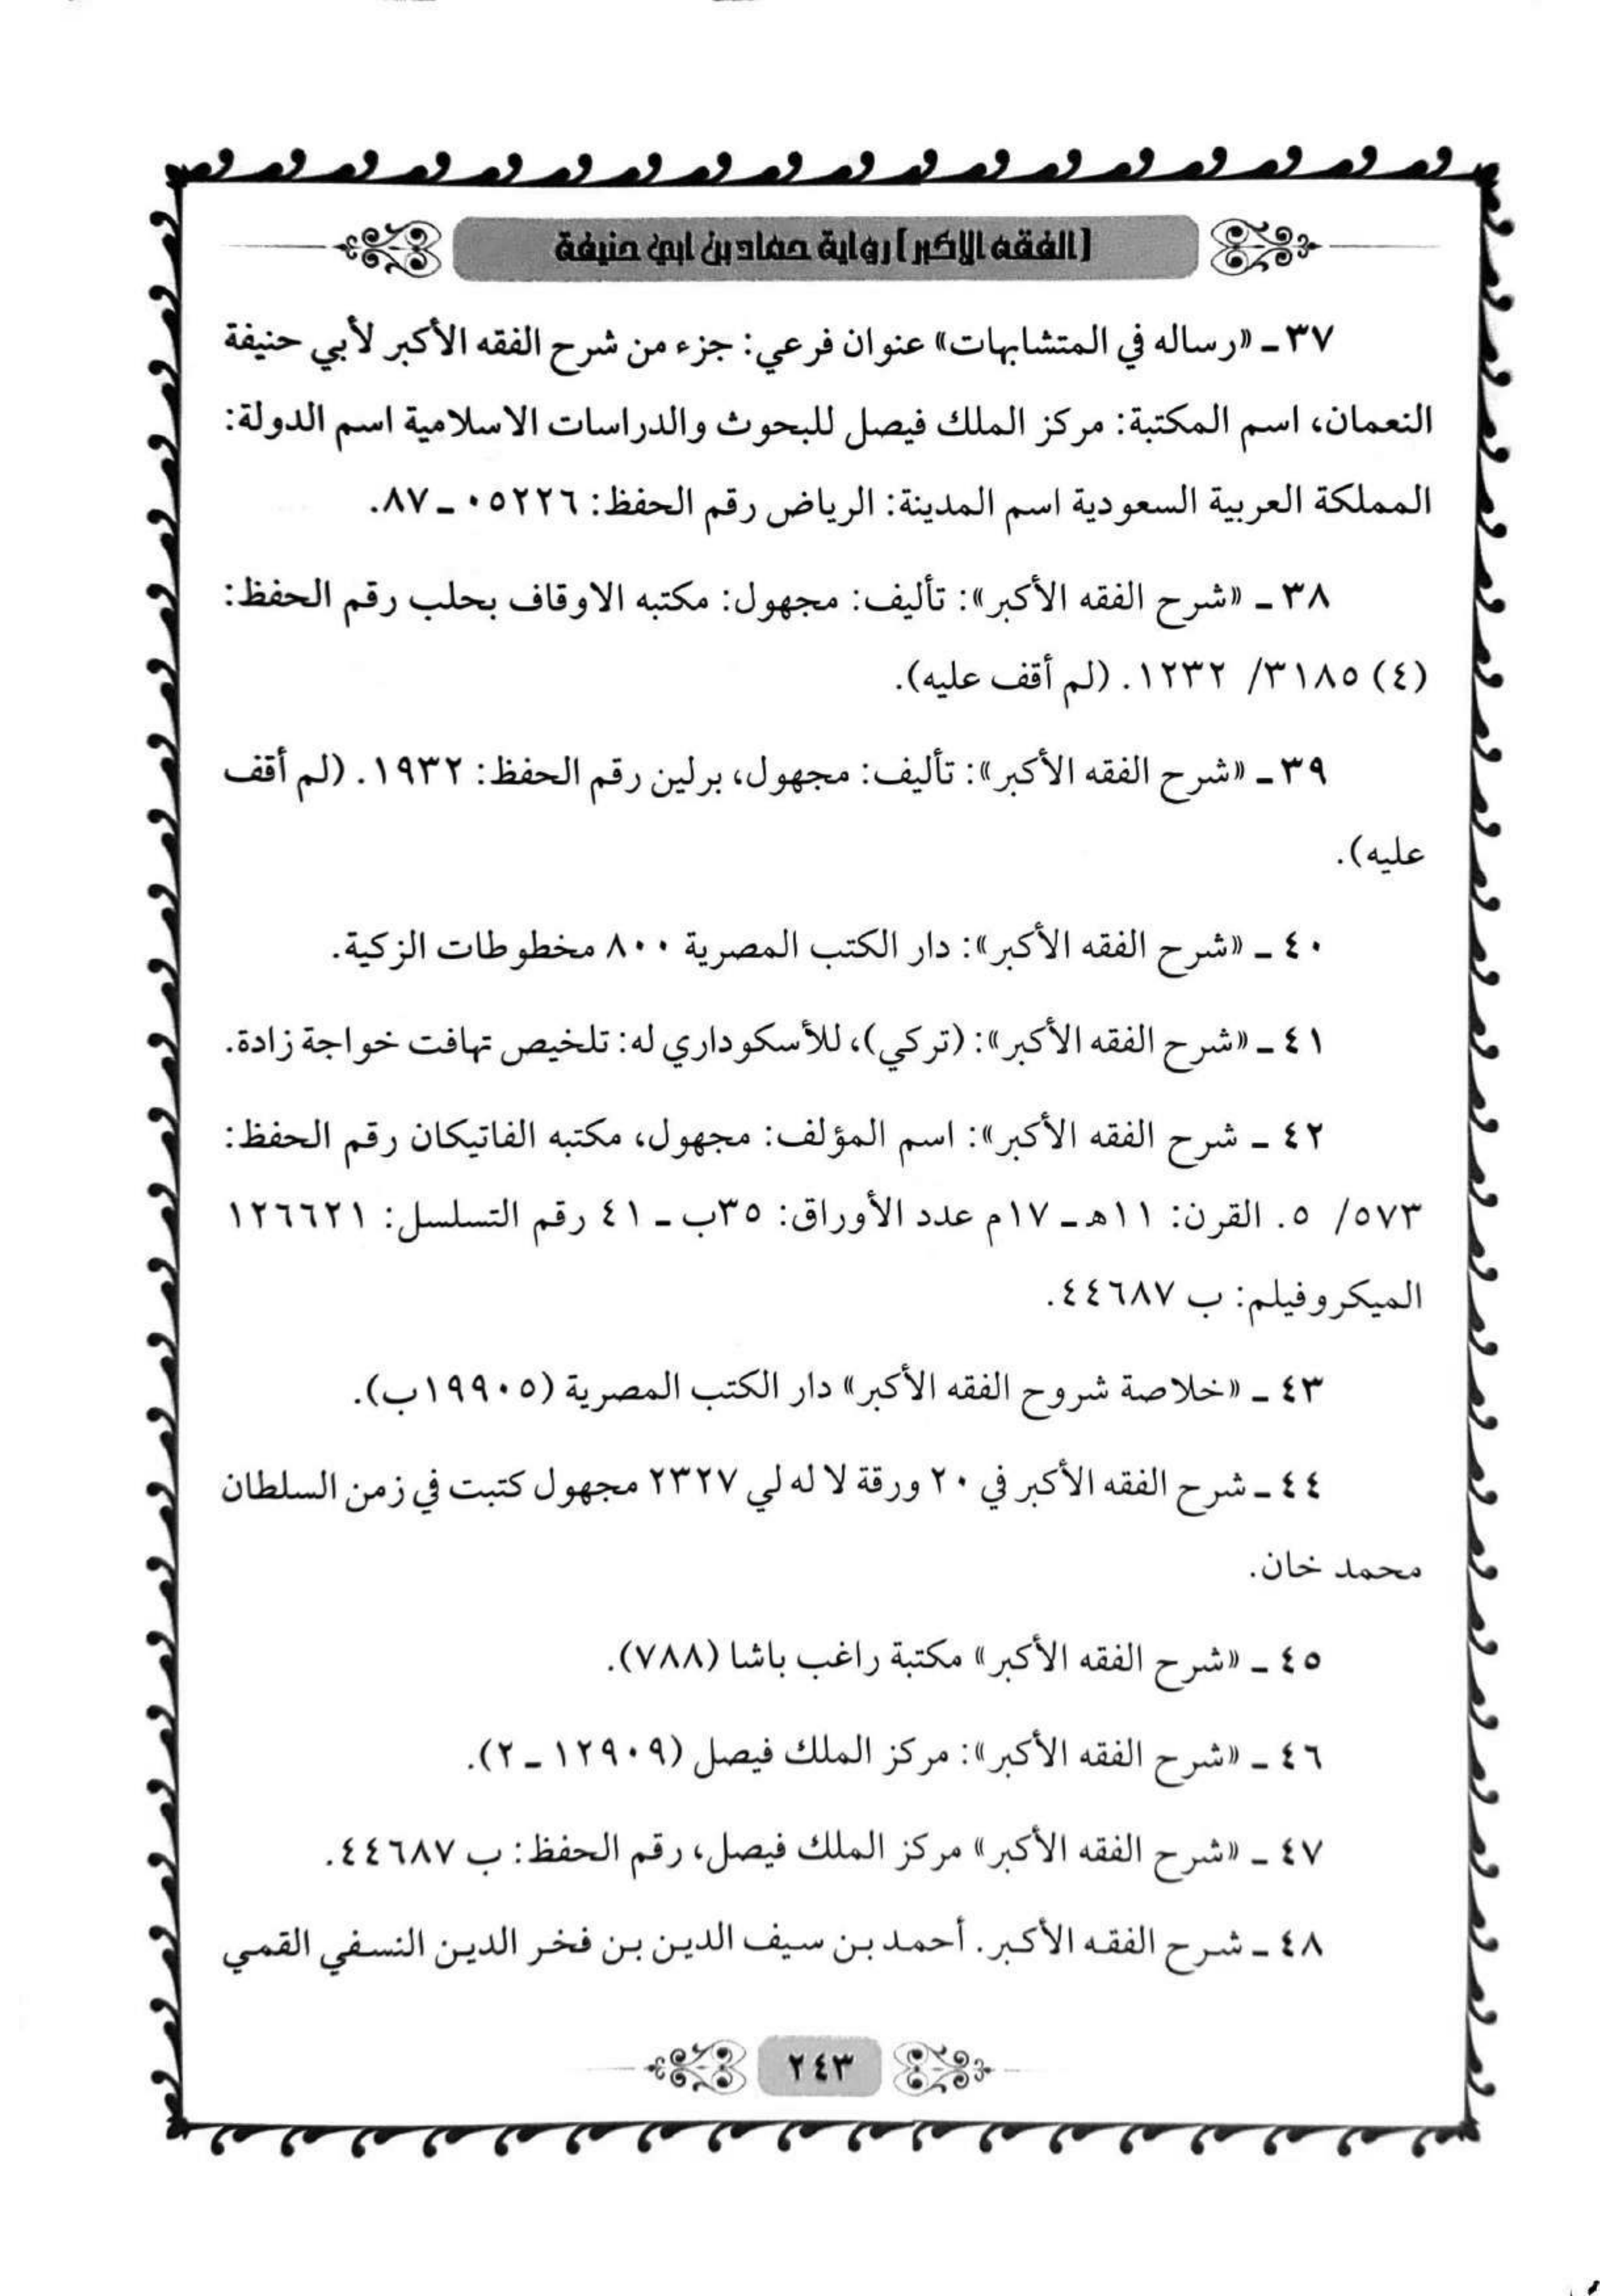 [الفقه الاكبر] رواية حماد بن ابي حنيفة
٣٧ ـ «رساله في المتشابهات» عنوان فرعي: جزء من شرح الفقه الأكبر لأبي حنيفة
النعمان، اسم المكتبة: مركز الملك فيصل للبحوث والدراسات الاسلامية اسم الدولة:
المملكة العربية السعودية اسم المدينة: الرياض رقم الحفظ: ٠٥٢٢٦ ـ ٨٧.
٣٨ ـ «شرح الفقه الأكبر»: تأليف: مجهول: مكتبه الاوقاف بحلب رقم الحفظ:
(٤) ٣١٨٥/ ١٢٣٢. (لم أقف عليه).
٣٩ ـ «شرح الفقه الأكبر»: تأليف: مجهول، برلين رقم الحفظ: ١٩٣٢. (لم أقف
عليه).
٤٠ ـ «شرح الفقه الأكبر»: دار الكتب المصرية ٨٠٠ مخطوطات الزكية.
٤١ ـ «شرح الفقه الأكبر»: (تركي)، للأسكوداري له: تلخيص تهافت خواجة زادة.
٤٢ ـ شرح الفقه الأكبر»: اسم المؤلف: مجهول، مكتبه الفاتيكان رقم الحفظ:
٥٧٣/ ٥. القرن: ١١هـ ـ ١٧م عدد الأوراق: ٣٥ب ـ ٤١ رقم التسلسل: ١٢٦٦٢١
الميكروفيلم: ب ٤٤٦٨٧.
٤٣ ـ «خلاصة شروح الفقه الأكبر» دار الكتب المصرية (١٩٩٠٥ب).
٤٤ ـ شرح الفقه الأكبر في ٢٠ ورقة لا له لي ٢٣٢٧ مجهول كتبت في زمن السلطان
محمد خان.
٤٥ ـ «شرح الفقه الأكبر» مكتبة راغب باشا (٧٨٨).
٤٦ ـ «شرح الفقه الأكبر»: مركز الملك فيصل (١٢٩٠٩ ـ ٢).
٤٧ ـ «شرح الفقه الأكبر» مركز الملك فيصل، رقم الحفظ: ب ٤٤٦٨٧.
٤٨ ـ شرح الفقه الأكبر. أحمد بن سيف الدين بن فخر الدين النسفي القمي
٢٤٣